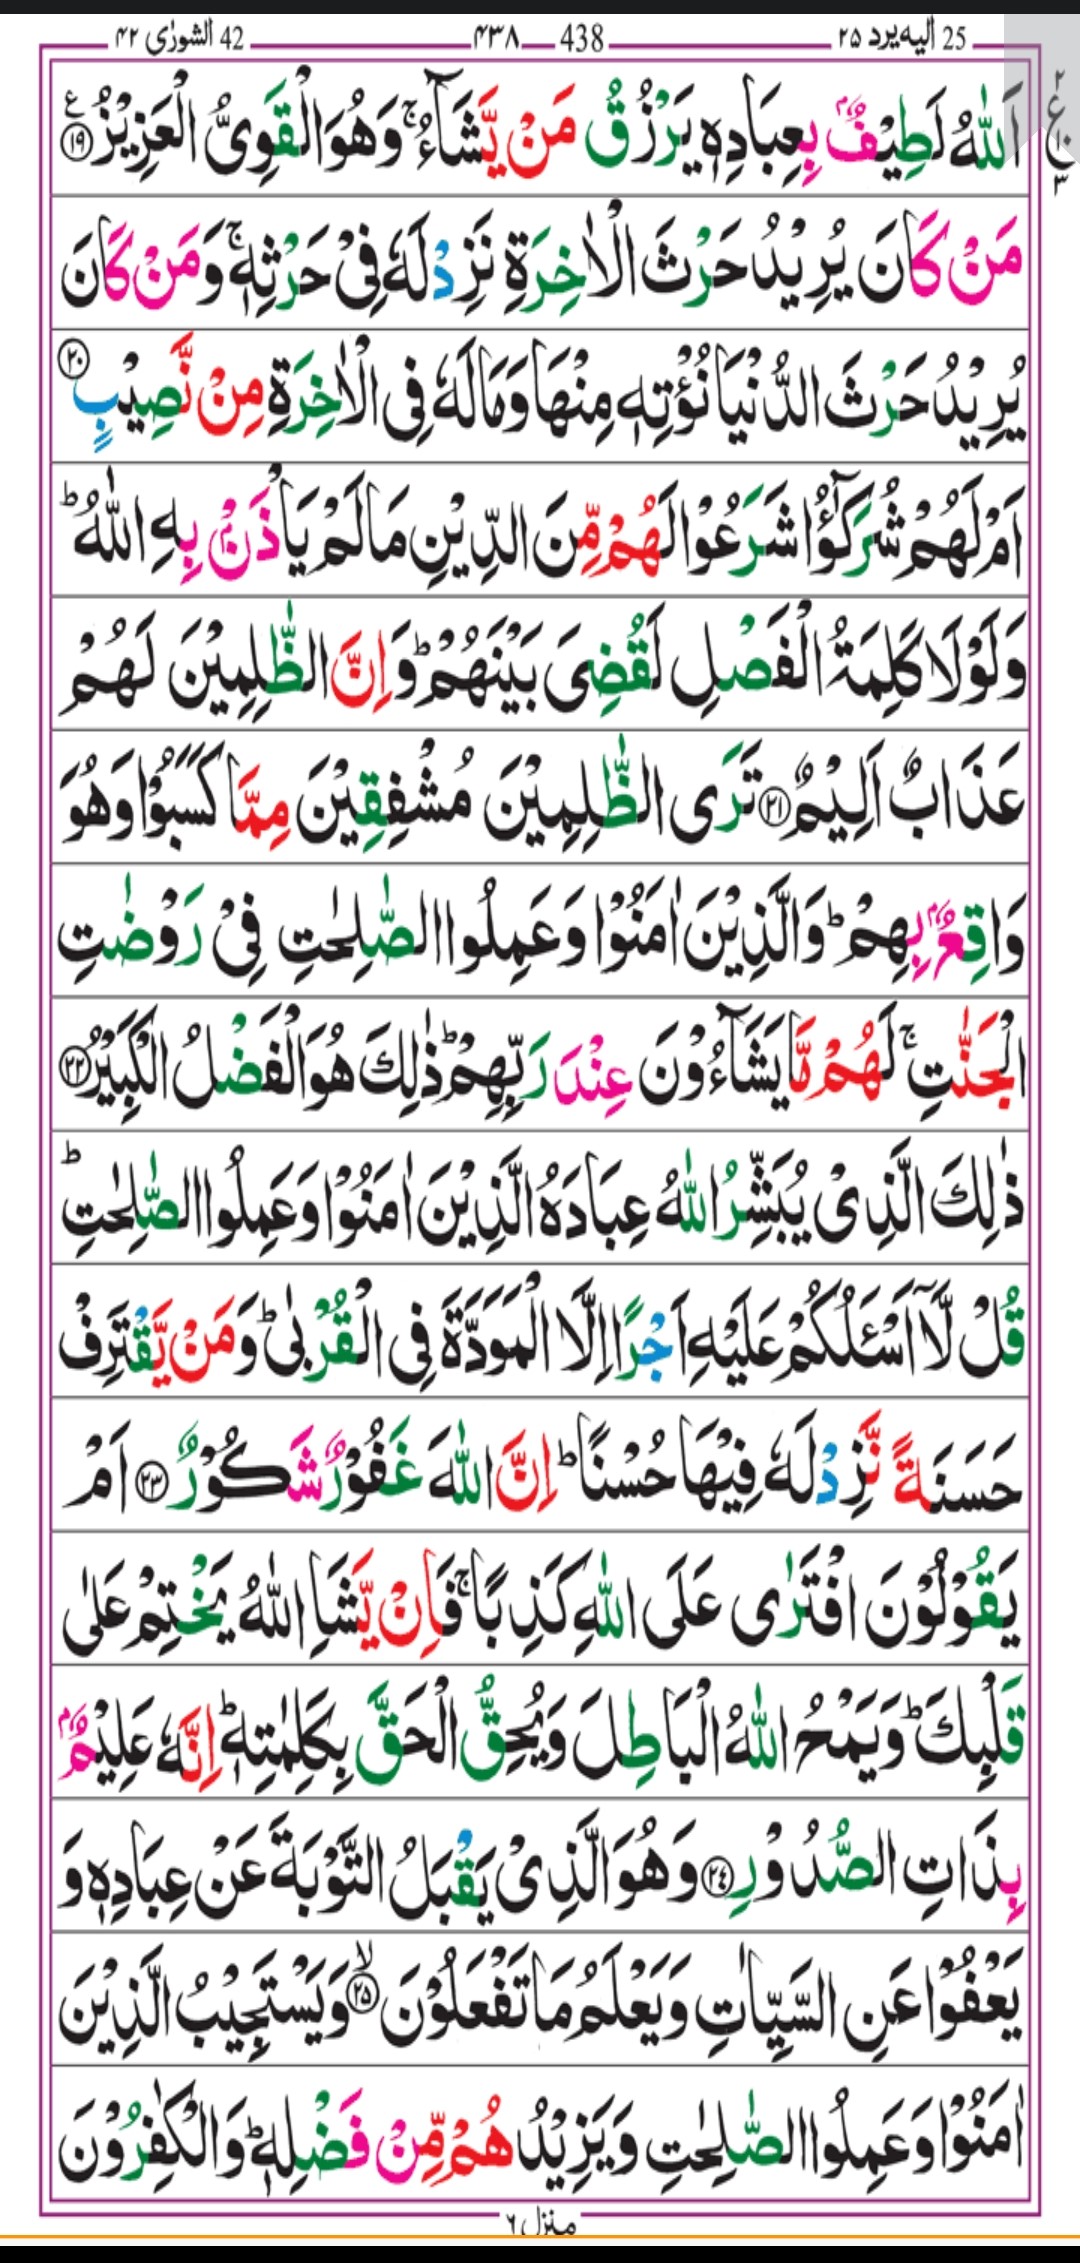 25 اليه يرد ٢٥ 438 ٤٣٨ 42 الشورٰى ٤٢
اَللّٰهُ لَطِيْفٌۢ بِعِبَادِهٖ يَرْزُقُ مَنْ يَّشَآءُ ۚ وَهُوَ الْقَوِىُّ الْعَزِيْزُ ۧ ﴿١٩﴾
مَنْ كَانَ يُرِيْدُ حَرْثَ الْاٰخِرَةِ نَزِدْ لَهٗ فِىْ حَرْثِهٖ ۚ وَمَنْ كَانَ
يُرِيْدُ حَرْثَ الدُّنْيَا نُؤْتِهٖ مِنْهَا وَمَا لَهٗ فِى الْاٰخِرَةِ مِنْ نَّصِيْبٍ ﴿٢٠﴾
اَمْ لَهُمْ شُرَكٰٓؤُا شَرَعُوْا لَهُمْ مِّنَ الدِّيْنِ مَا لَمْ يَاْذَنْۢ بِهِ اللّٰهُ ؕ
وَلَوْلَا كَلِمَةُ الْفَصْلِ لَقُضِىَ بَيْنَهُمْ ؕ وَاِنَّ الظّٰلِمِيْنَ لَهُمْ
عَذَابٌ اَلِيْمٌ ﴿٢١﴾ تَرَى الظّٰلِمِيْنَ مُشْفِقِيْنَ مِمَّا كَسَبُوْا وَهُوَ
وَاقِعٌۢ بِهِمْ ؕ وَالَّذِيْنَ اٰمَنُوْا وَعَمِلُوا الصّٰلِحٰتِ فِىْ رَوْضٰتِ
الْجَنّٰتِ ۚ لَهُمْ مَّا يَشَآءُوْنَ عِنْدَ رَبِّهِمْ ؕ ذٰلِكَ هُوَ الْفَضْلُ الْكَبِيْرُ ﴿٢٢﴾
ذٰلِكَ الَّذِىْ يُبَشِّرُ اللّٰهُ عِبَادَهُ الَّذِيْنَ اٰمَنُوْا وَعَمِلُوا الصّٰلِحٰتِ ؕ
قُلْ لَّاۤ اَسْـَٔلُكُمْ عَلَيْهِ اَجْرًا اِلَّا الْمَوَدَّةَ فِى الْقُرْبٰى ؕ وَمَنْ يَّقْتَرِفْ
حَسَنَةً نَّزِدْ لَهٗ فِيْهَا حُسْنًا ؕ اِنَّ اللّٰهَ غَفُوْرٌ شَكُوْرٌ ﴿٢٣﴾ اَمْ
يَقُوْلُوْنَ افْتَرٰى عَلَى اللّٰهِ كَذِبًا ۚ فَاِنْ يَّشَاِ اللّٰهُ يَخْتِمْ عَلٰى
قَلْبِكَ ؕ وَيَمْحُ اللّٰهُ الْبَاطِلَ وَيُحِقُّ الْحَقَّ بِكَلِمٰتِهٖ ؕ اِنَّهٗ عَلِيْمٌۢ
بِذَاتِ الصُّدُوْرِ ﴿٢٤﴾ وَهُوَ الَّذِىْ يَقْبَلُ التَّوْبَةَ عَنْ عِبَادِهٖ وَ
يَعْفُوْا عَنِ السَّيِّاٰتِ وَيَعْلَمُ مَا تَفْعَلُوْنَ ۙ ﴿٢٥﴾ وَيَسْتَجِيْبُ الَّذِيْنَ
اٰمَنُوْا وَعَمِلُوا الصّٰلِحٰتِ وَيَزِيْدُهُمْ مِّنْ فَضْلِهٖ ؕ وَالْكٰفِرُوْنَ
منزل ٦